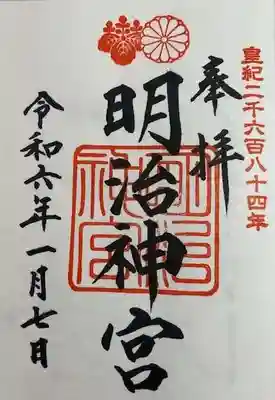 皇紀二千六百八十四年
奉拝
明治神宮
令和六年一月七日